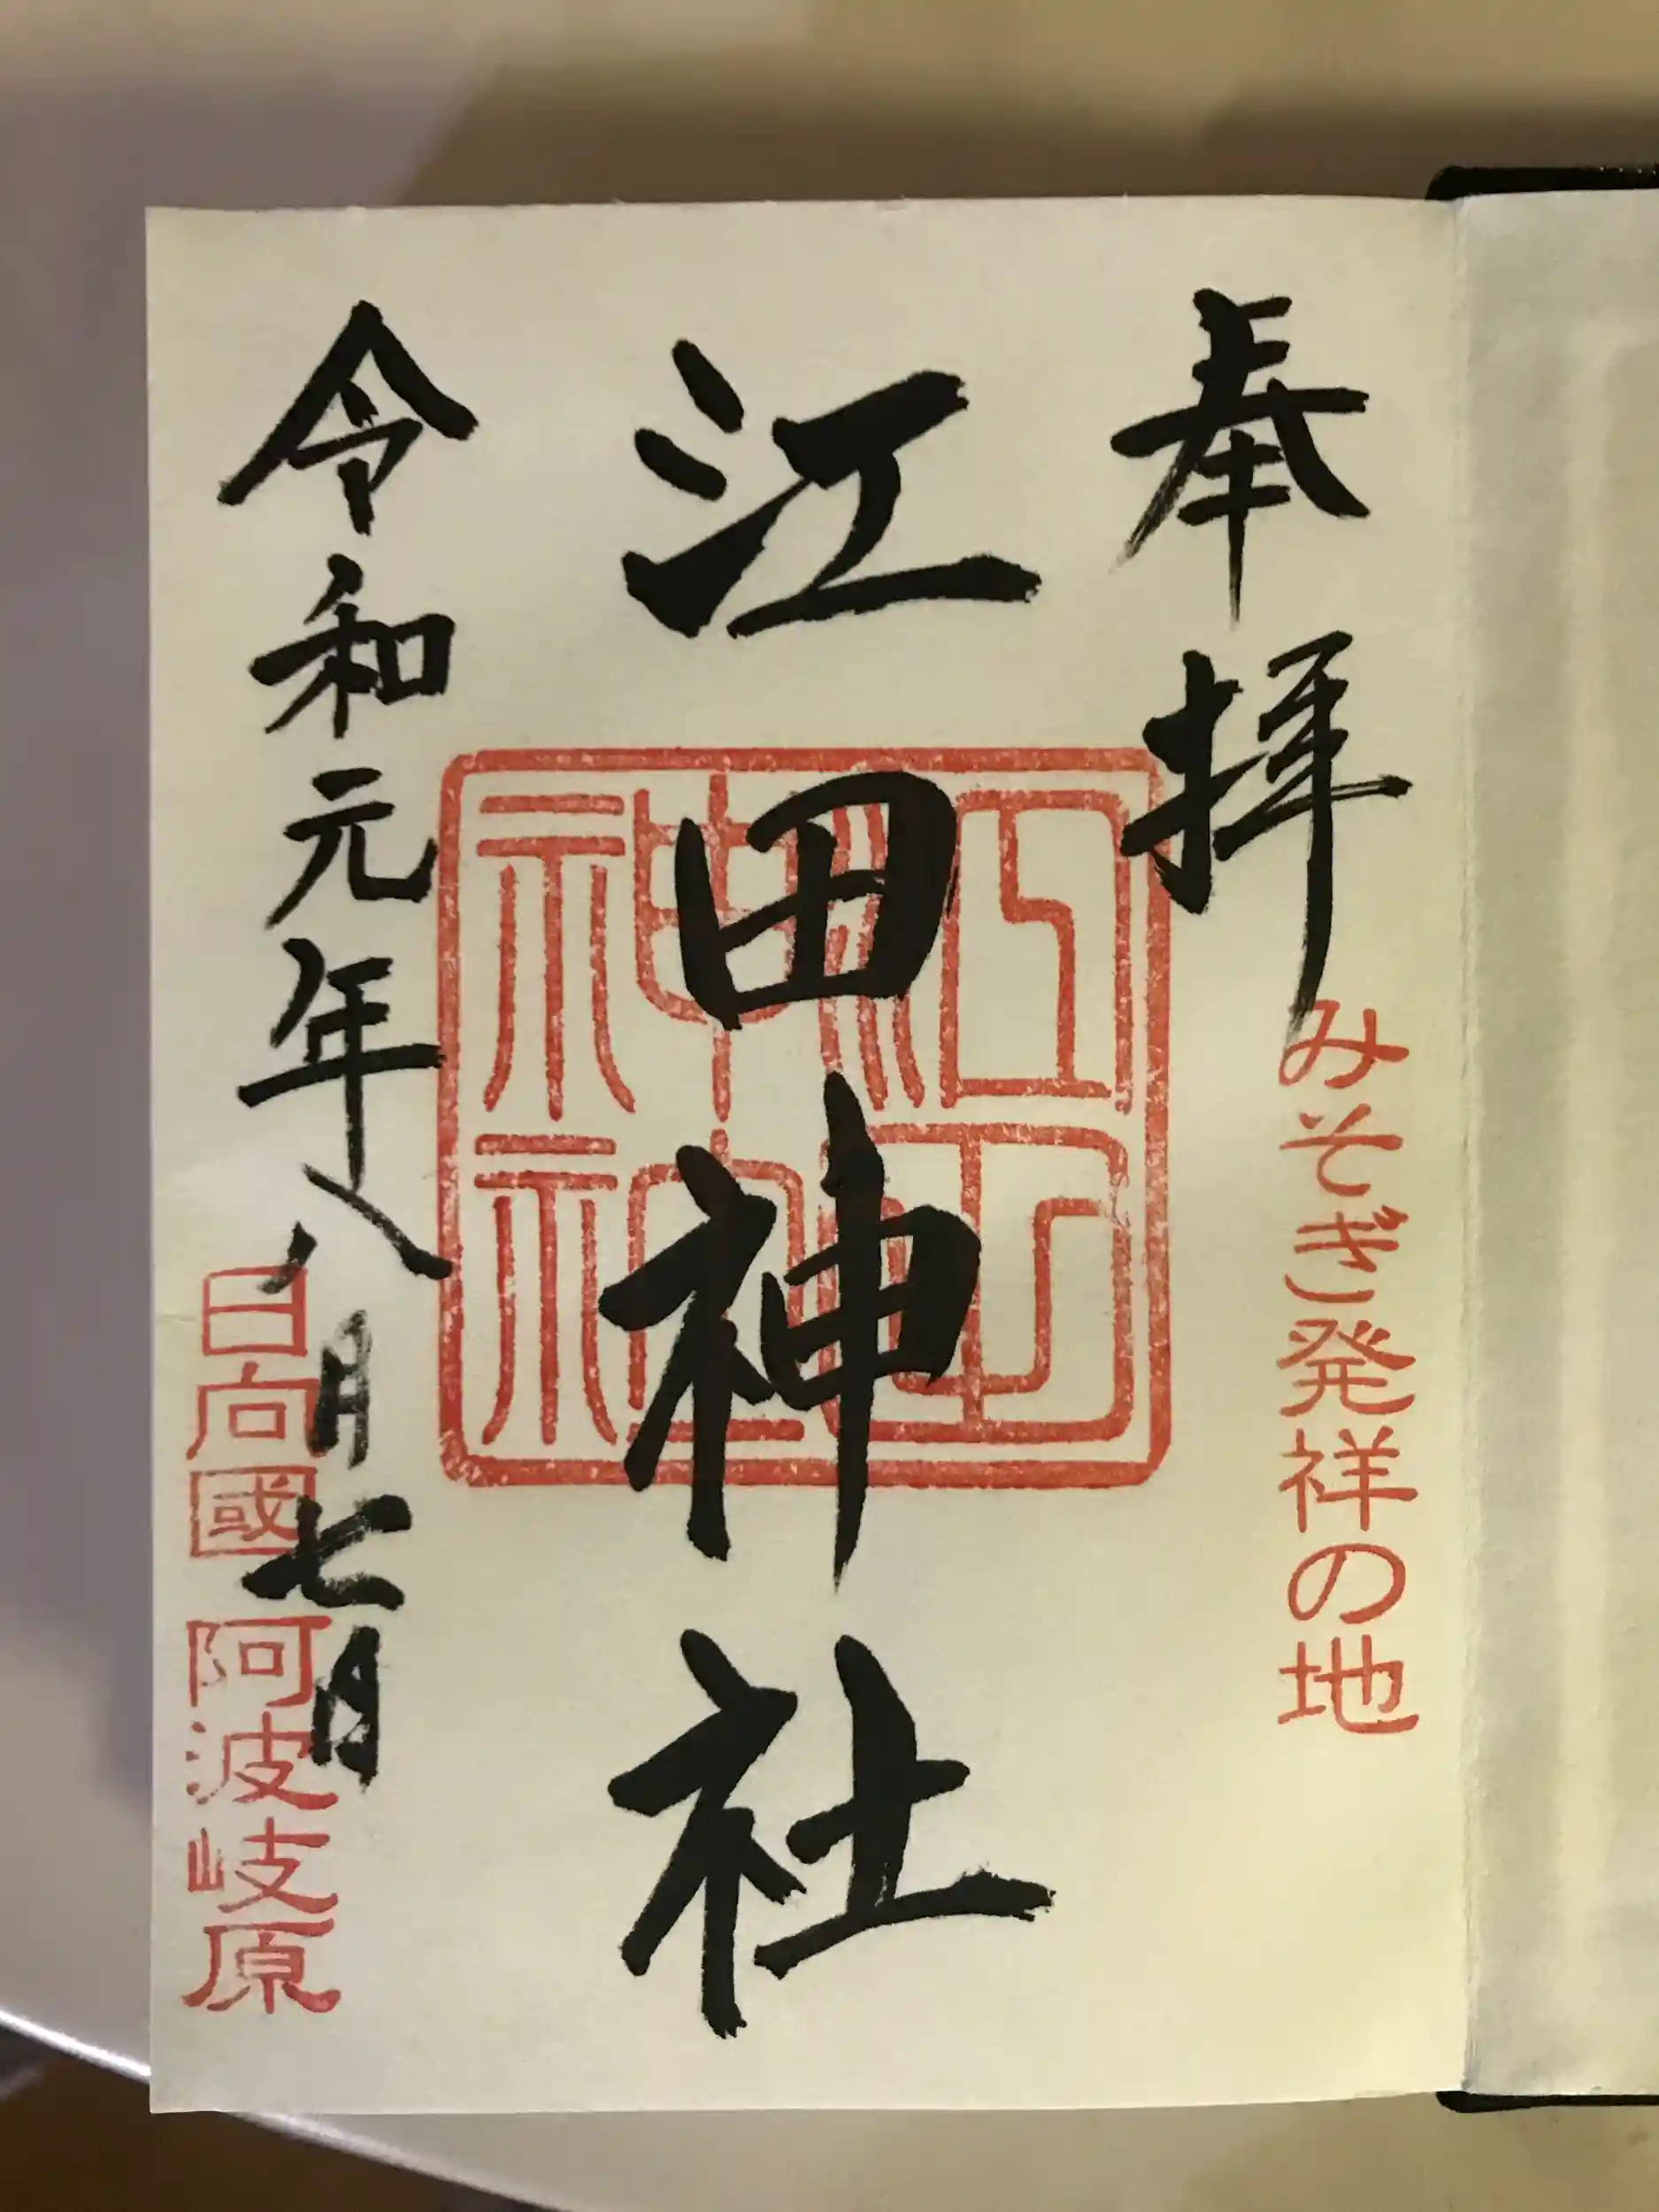 奉拝
みそぎ発祥の地
江田神社
江田神社
令和元年八月七日
日向國阿波岐原